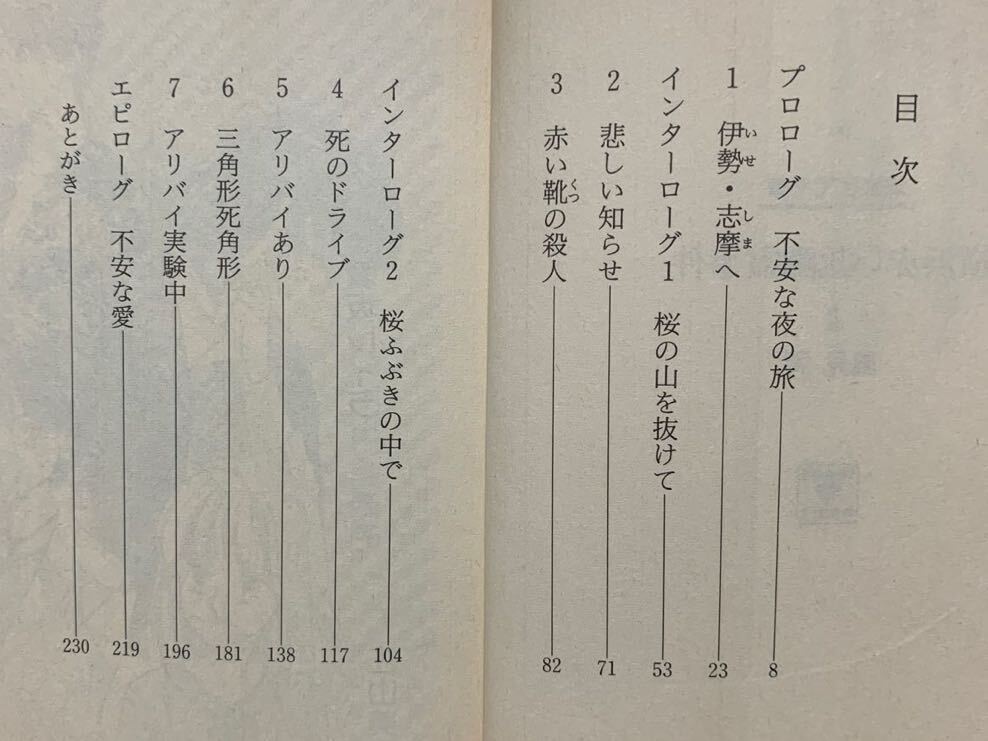 目次
プロローグ 不安な夜の旅 8
1 伊勢・志摩へ 23
インターローグ1 桜の山を抜けて 53
2 悲しい知らせ 71
3 赤い靴の殺人 82
インターローグ2 桜ふぶきの中で 104
4 死のドライブ 117
5 アリバイあり 138
6 三角形死角形 181
7 アリバイ実験中 196
エピローグ 不安な愛 219
あとがき 230